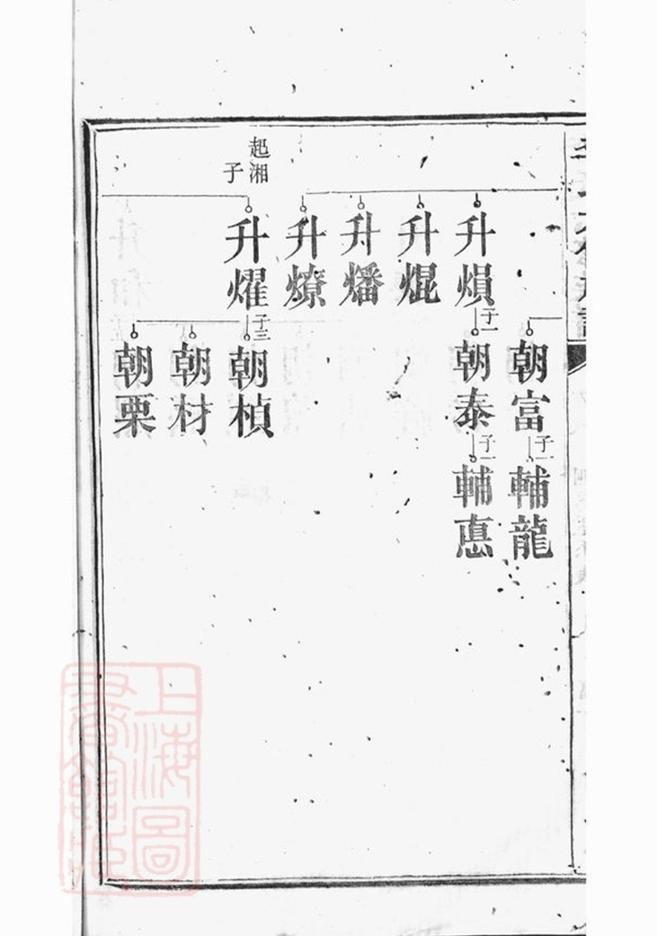 朝富
子一
輔龍
升熉
子一
朝泰
子一
輔惪
升焜
升燔
升燎
起湘
子
升燿
子三
朝楨
朝材
朝栗
上海圖
書館藏